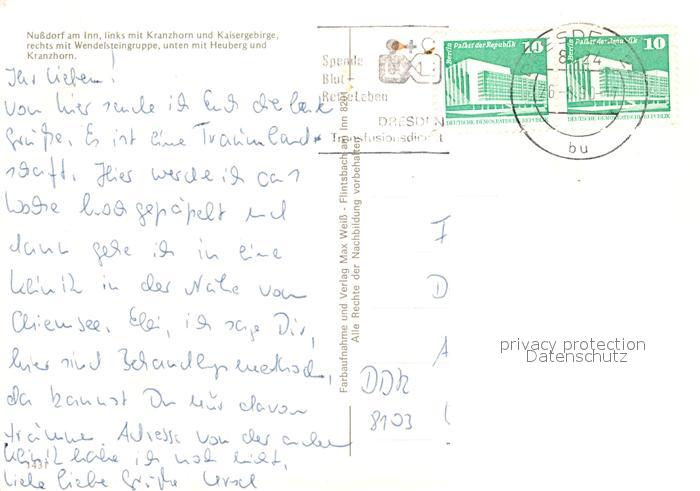 Nußdorf am Inn, links mit Kranzhorn und Kaisergebirge,
rechts mit Wendelsteingruppe, unten mit Heuberg und
Kranzhorn.
Ihr Lieben!
von hier sende ich Euch die besten
Grüße. Es ist eine Traumland-
schaft. Hier werde ich ca 1
Woche hochgepäpelt und
dann gehe ich in eine
Klinik in der Nähe vom
Chiemsee. Elei, ich sage Dir,
hier sind Behandlungsmethoden,
da kannst Du nur davon
träumen. Adresse von der anderen
Klinik habe ich noch nicht.
Viele liebe Grüße Ursel
1431
Farbaufnahme und Verlag Max Weiß - Flintsbach am Inn 8201
Alle Rechte der Nachbildung vorbehalten
Spende
Blut -
Rette Leben
DRESDEN
Transfusionsdienst
Berlin Palast der Republik 10
DEUTSCHE DEMOKRATISCHE REPUBLIK
Berlin Palast der Republik 10
DEUTSCHE DEMOKRATISCHE REPUBLIK
DRESDEN
bu
F
D
A
DDR
8103
privacy protection
Datenschutz